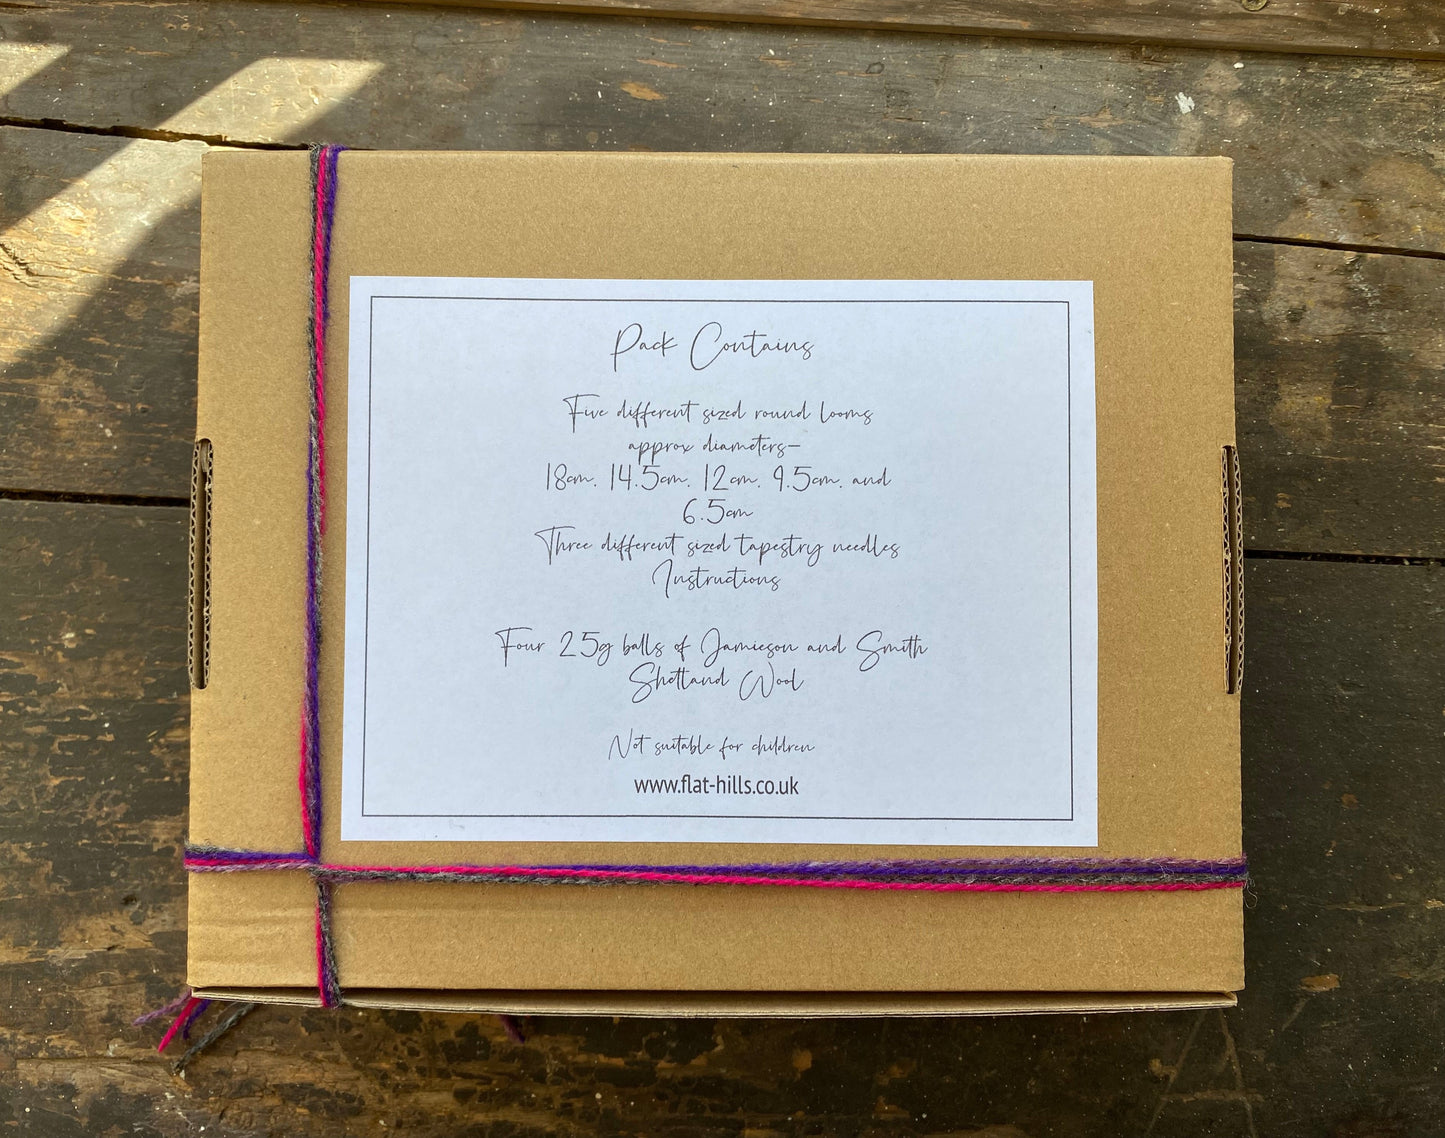 Pack Contains
Five different sized round looms
approx diameters-
18cm. 14.5cm. 12cm. 9.5cm. and
6.5cm
Three different sized tapestry needles
Instructions
Four 25g balls of Jamieson and Smith
Shetland Wool
Not suitable for children
www.flat-hills.co.uk